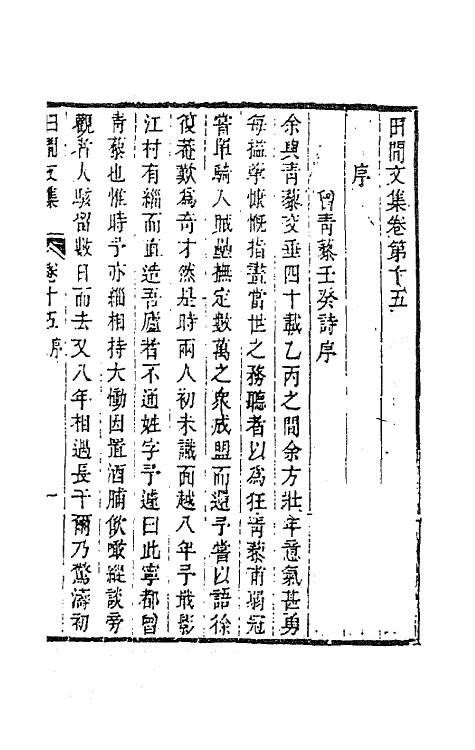 田間文集卷第十五
序
曾青藜壬癸詩序
余與青藜交垂四十載乙丙之間余方壯年意氣甚勇
每搤擥慷慨指畫當世之務聽者以為狂青藜甫弱冠
嘗單騎入賊壘撫定數萬之衆成盟而還予嘗以語徐
復菴歎為奇才然是時兩人初未識面越八年予戢影
江村有緇而直造吾廬者不通姓字予遽曰此寧都曾
青藜也惟時予亦緇相持大慟因置酒脯飲噉縱談旁
觀者大駭留數日而去又八年相遇長干爾乃驚濤初
田間文集 卷十五 序 一